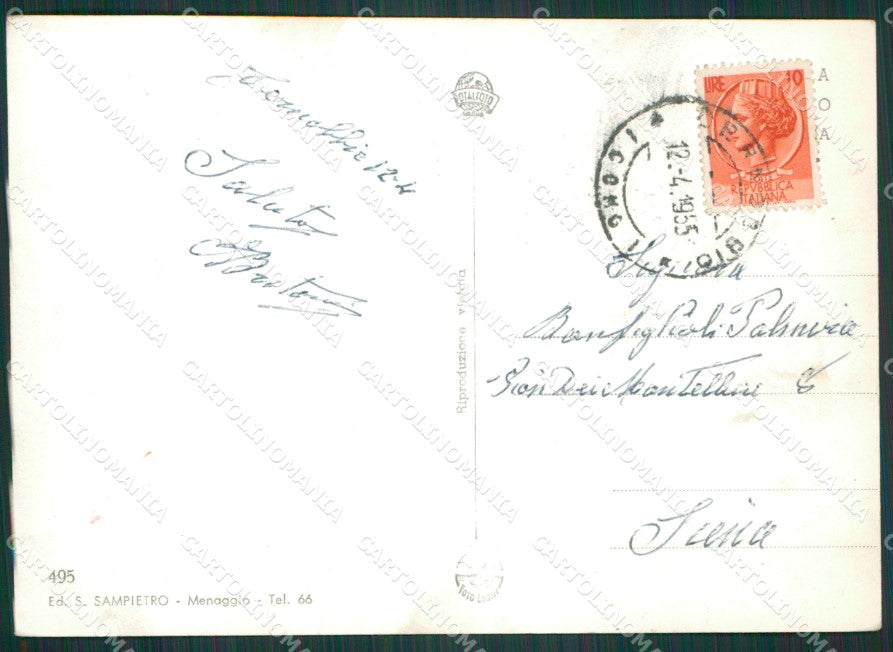 Cernobbio 12-4
Saluti
Signora
Bonfiglioli Palmira
Dei Montellini 6
Siena
LIRE 10
REPVBBLICA
ITALIANA
12.-4.1955
(COMO)
TOTALFOTO
Riproduzione vietata
495
Ed. S. SAMPIETRO - Menaggio - Tel. 66
CARTOLINOMANIA